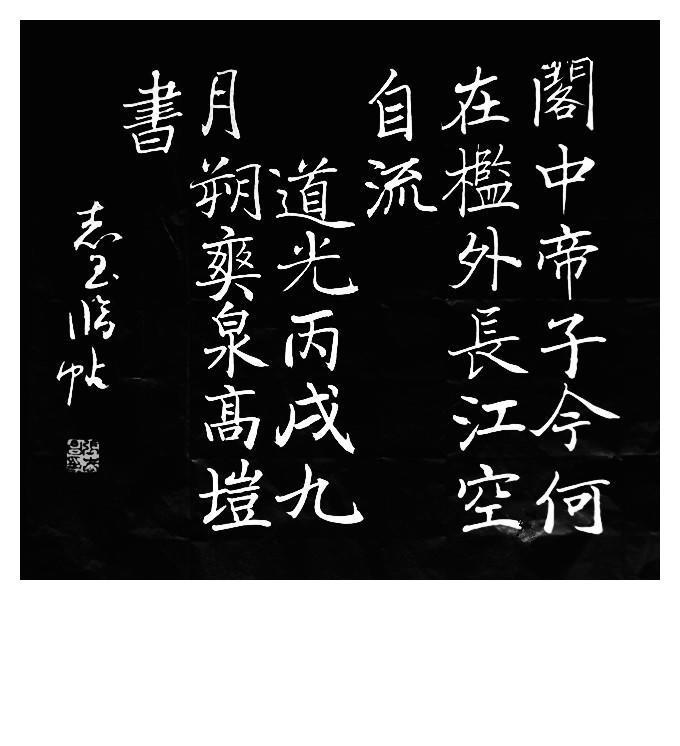 閣中帝子今何
在檻外長江空
自流
道光丙戌九
月朔爽泉高塏
書
志玉臨帖